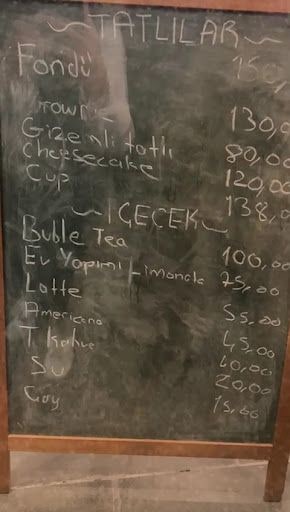 ~ TATLILAR ~
Fondü 150,
Brownie 130,0
Gizemli tatlı 80,00
Cheesecake 120,00
Cup 138,0
~ İÇECEK ~
Buble Tea 100,00
Ev Yapımı Limonata 75,00
Latte 55,00
Americano 45,00
T. Kahve 40,00
Su 20,00
Çay 15,00